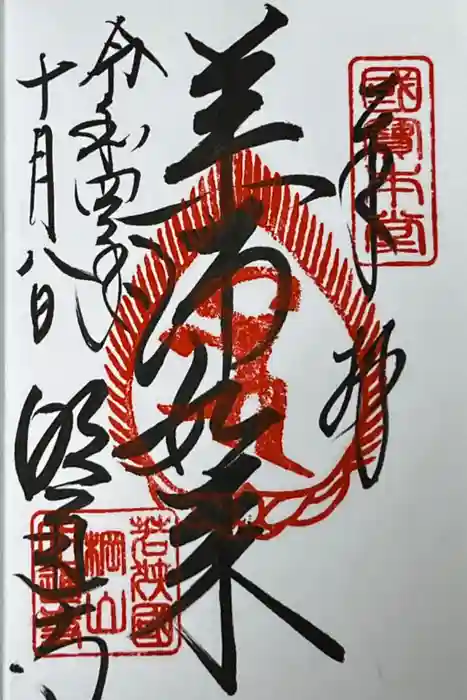 國寶本堂
奉拝
薬師如来
令和四年
十月八日
明通寺
若狭國
棡山
明通寺